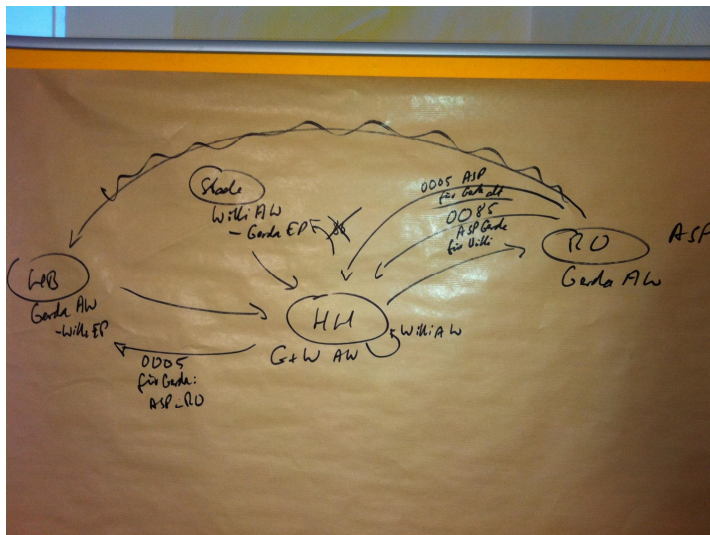 Stade
Willi AW
- Gerda EP
0005 ASP
für Gerda
0085
ASP Gerda
für Willi
RO
ASP
Gerda AW
Gerda AW
- Willi EP
HH
Willi AW
G+W AW
0005
für Gerda:
ASP_RO